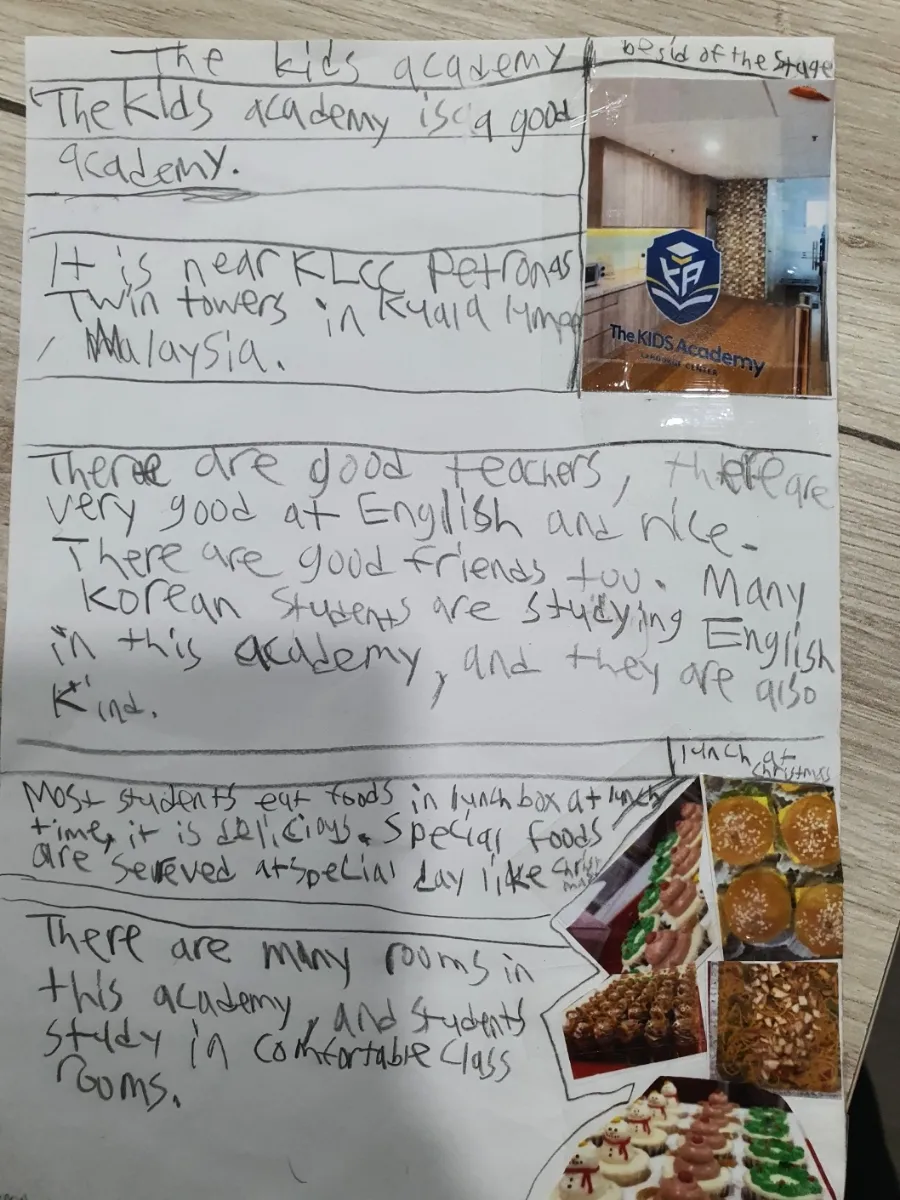 The kids academy
besid of the stage
The Kids academy is a good
academy.
It is near KLCC Petronas
Twin towers in Kuala lumpe
, Malaysia.
KA
The KIDS Academy
LANGUAGE CENTER
There are good teachers, there are
very good at English and nice.
There are good friends too. Many
Korean students are studying English
in this academy, and they are also
Kind.
lunch at
christmas
Most students eat foods in lunch box at lunch
time, it is delicious. Special foods
are sereved at special day like christ
mas
There are many rooms in
this academy, and students
study in comfortable class
rooms.